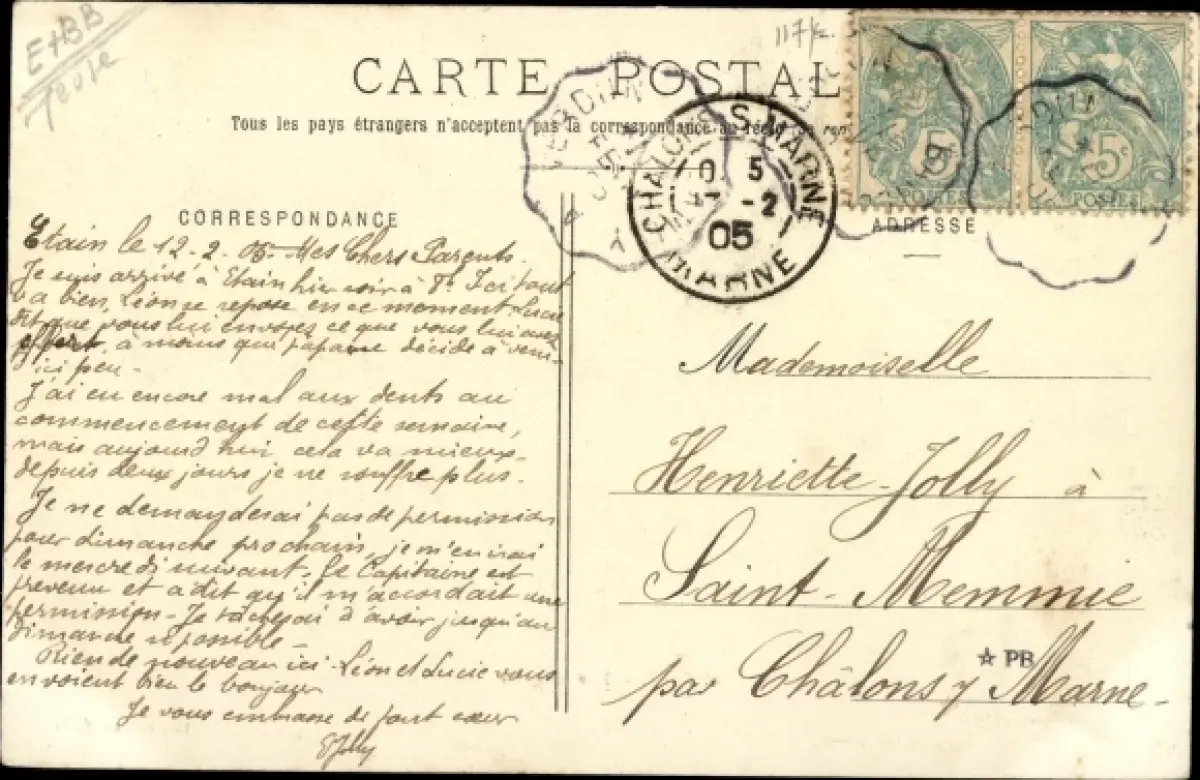 E+BB
117k
CARTE POSTAL
Tous les pays étrangers n'acceptent pas la correspondance au
CHALONS S. MARNE
0. 5
-2
05
MARNE
5c
POSTES
5c
POSTES
CORRESPONDANCE
ADRESSE
Etain le 12-2-05- Mes Chers Parents.
Je suis arrivé à Etain hier soir à 7h. Ici tout
va bien, Léon se repose en ce moment Lucie
dit que vous lui envoyez ce que vous lui avez
offert, à moins que papa ne décide à venir
ici peu-
J'ai eu encore mal aux dents au
commencement de cette semaine,
mais aujourd'hui cela va mieux-
depuis deux jours je ne souffre plus.
Je ne demanderai pas de permission
pour dimanche prochain, je m'en irai
le mercredi suivant. Le Capitaine est
prévenu et a dit qu'il m'accordait une
permission- Je tacherai d'avoir jusqu'au
dimanche si possible-
Rien de nouveau ici. Léon et Lucie vous
envoient bien le bonjour
Je vous embrasse de tout cœur
Jolly
Mademoiselle
Henriette Jolly à
Saint-Memmie
par Châlons s/ Marne-
☆ PB